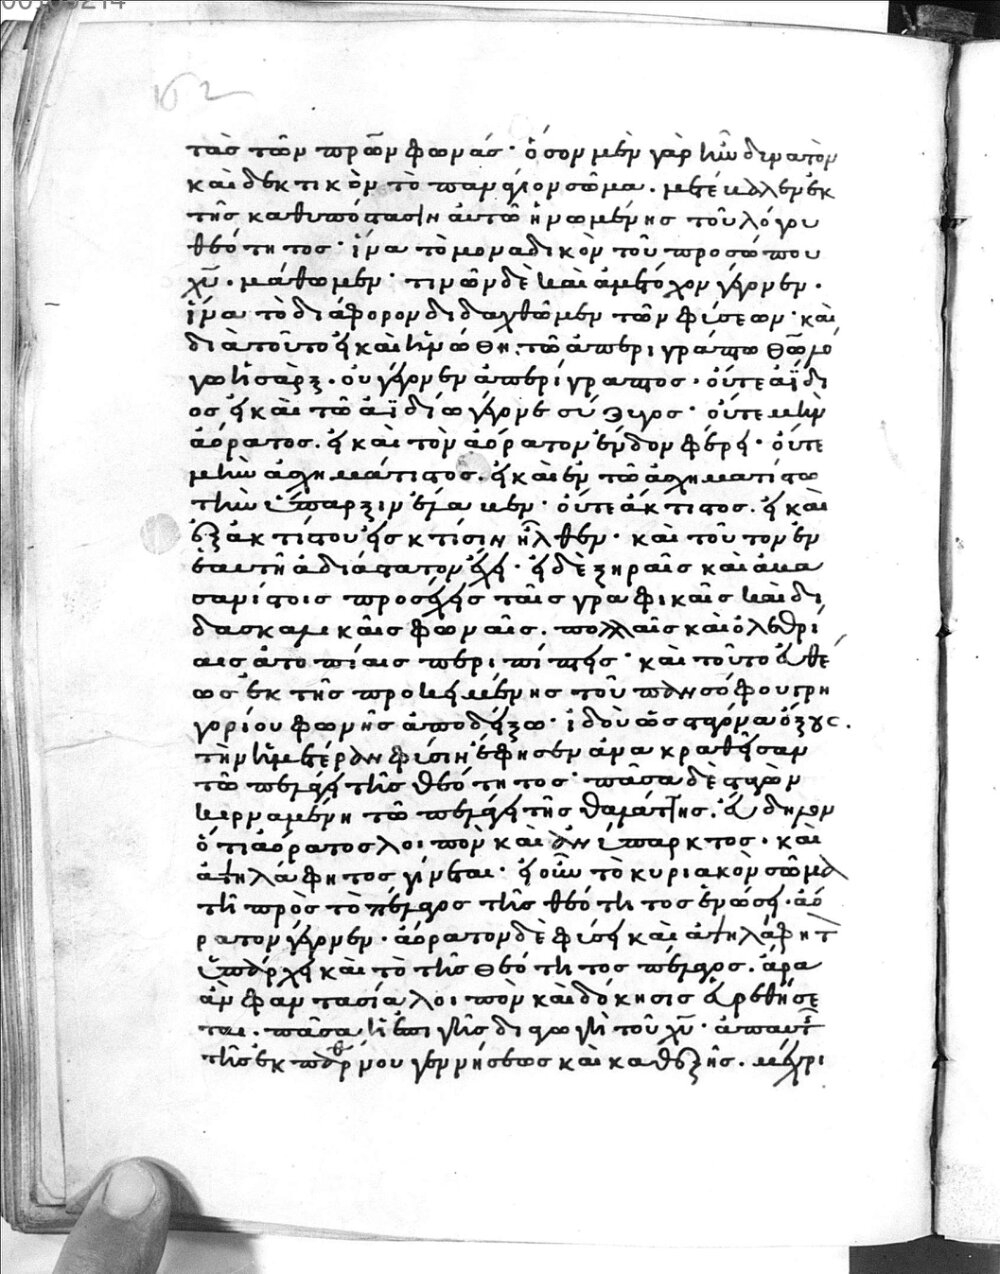 τὰσ τῶν πρῶν φωνάσ· ὅσον μὲν γὰρ ἦν δυνατὸν
καὶ δεκτικὸν τὸ πανάγιον σῶμα. μετέβαλλεν ἐκ
τῆσ καθυπόστασιν αὐτῶ ἡνωμένησ τοῦ λόγου
θεότητοσ· ἵνα τὸ μοναδικὸν τοῦ προσώπου
χῦ. μάθωμεν· τινῶν δὲ καὶ ἀμέτοχον γέγονεν.
ἵνα τὸ διάφορον διδαχθῶμεν τῶν φύσεων· καὶ
διὰ τοῦτο εἰ καὶ ἡνώθη τῶ ἀπεριγράπτω θῶ λό
γω ἡ σὰρξ. οὐ γέγονεν ἀπερίγραπτοσ· οὔτε ἀΐδι
οσ εἰ καὶ τῶ ἀϊδίω γέγονε σύζυγοσ· οὔτε μὴν
ἀόρατοσ. εἰ καὶ τὸν ἀόρατον ἔνδον φέρει· οὔτε
μὴν ἀσχημάτιστοσ. εἰ καὶ ἐν τῶ ἀσχηματίστω
τὴν ὕπαρξιν οὔτε ἄκτιστοσ. εἰ καὶ
ἐξ ἀκτίστου εἰσ κτίσιν ἦλθεν· καὶ τοῦτον ἐν
ἑαυτῆ ἀδιάστατον ἔχει· εἰ δὲ ξηραῖσ καὶ ἀμα
σσήτοισ προσέχεισ ταῖσ γραφικαῖσ καὶ δι
δασκαλικαῖσ φωναῖσ. πολλαῖσ καὶ ὀλεθρί
αισ ἀτοπίαισ περιπίπτεισ· καὶ τοῦτο εὐθέ
ωσ ἐκ τῆσ προκειμένησ τοῦ πανσόφου γρη
γορίου φωνῆσ ἀποδείξω· ἰδοὺ ὡσ σταγόνα ὄξουσ.
τὴν ἡμετέραν φύσιν ἔφησεν ἀνακραθεῖσαν
τῶ πελάγει τῆσ θεότητοσ· πᾶσα δὲ σταγὼν
κερναμένη τῶ πελάγει τῆσ θαλάττησ. εὔδηλον
ὅτι ἀόρατοσ λοιπὸν καὶ ἀνύπαρκτοσ. καὶ
ἀψηλάφητοσ γίνεται· εἰ οὖν τὸ κυριακὸν σῶμα
τῆ πρὸσ τὸ πέλαγοσ τῆσ θεότητοσ ἑνώσει. ἀό
ρατον γέγονεν. ἀόρατον δὲ φύσει καὶ ἀψηλάφητ
ὑπάρχει καὶ τὸ τῆσ θεότητοσ πέλαγοσ. ἄρα
ἂν φαντασία λοιπὸν καὶ δόκησισ εὑρεθήσε
ται. πᾶσα ἡ ἐπὶ γῆσ διαγωγὴ τοῦ χῦ. ἀπαυτ
τῆσ ἐκ παρθένου γεννήσεωσ καὶ καθεξῆσ. μέχρι